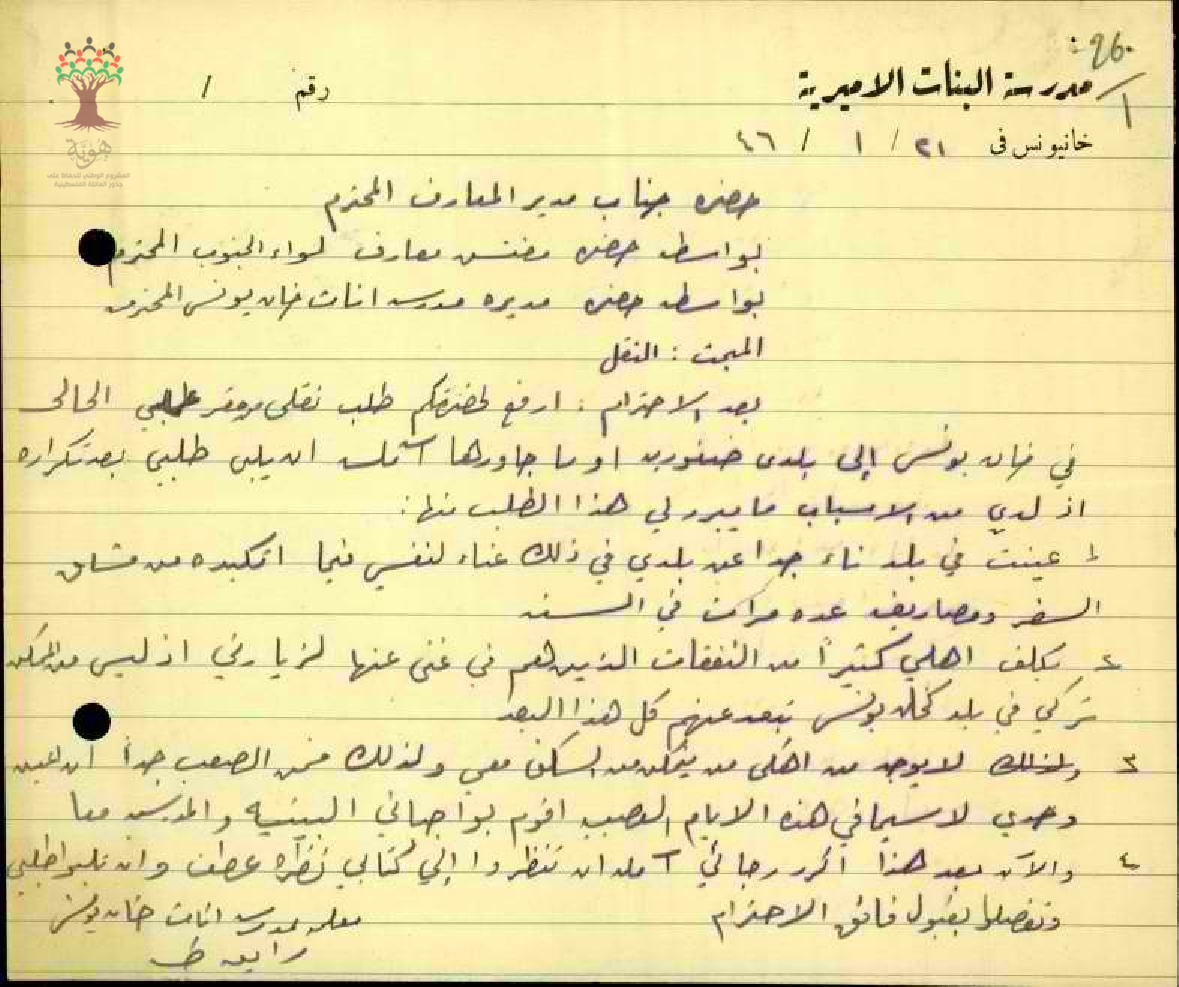 26.
1
مدرسة البنات الاميرية
رقم /
خانيونس في ٢١ / ١ / ٤٦
هوية
المشروع الوطني للحفاظ على
جذور العائلة الفلسطينية
حضرة جناب مدير المعارف المحترم
بواسطة حضرة مفتش معارف لواء الجنوب المحترم
بواسطة حضرة مديرة مدرسة اناث خان يونس المحترمه
المبحث : النقل
بعد الاحترام : ارفع لحضرتكم طلب نقلي من مقر عملي الحالي
في خان يونس إلى بلدي او ما جاورها آملة ان يلبى طلبي بعد تكراره
اذ لدي من الاسباب ما يبرر لي هذا الطلب منها :
١ عينت في بلد ناء جدا عن بلدي في ذلك عناء لنفسي فيما اتكبده من مشاق
السفر ومصاريف عدة مرات في السنة
٢ يكلف اهلي كثيراً من النفقات الذين هم في غنى عنها لزيارتي اذ ليس من الممكن
تركي في بلد كخان يونس تبعد عنهم كل هذا البعد
٣ ولذلك لا يوجد من اهلي من يتمكن من السكن معي ولذلك فمن الصعب جداً ان اعيش
وحدي لا سيما في هذه الايام العصيبة اقوم بواجباتي البيتيه والمدرسية معا
٤ والآن بعد هذا اكرر رجائي آملة ان تنظروا إلى كتابي نظرة عطف وان تلبوا طلبي
وتفضلوا بقبول فائق الاحترام
معلمة بمدرسة اناث خان يونس